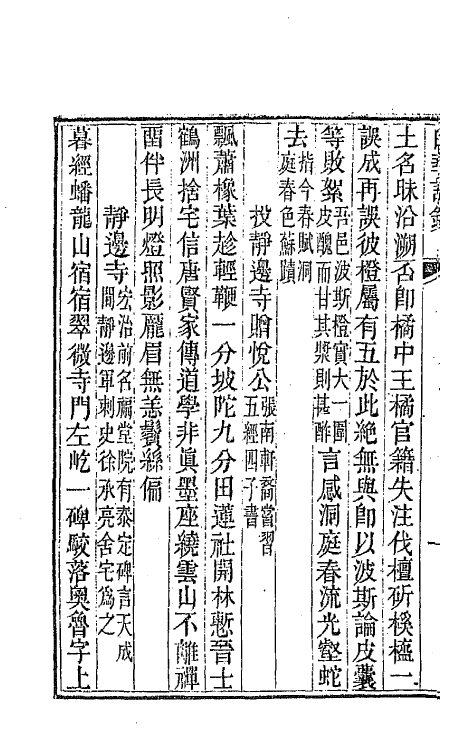 土名昧沿溯否卽橘中王橘官籍失注伐檀斫榽橀一
誤成再誤彼橙屬有五於此絶無與卽以波斯論皮囊
等敗絮吾邑波斯橙實大一圍皮醜而甘其漿則甚酢言感洞庭春流光壑蛇
去指今春賦洞庭春色蘇蹟
投靜邊寺贈悅公張南軒裔嘗習五經四子書
飄蕭橡葉趁輕鞭一分坡陀九分田蓮社開林慙晉士
鶴洲捨宅信唐賢家傳道學非眞墨座繞雲山不離禪
畱伴長明燈照影龎眉無恙鬢絲偏
靜邊寺宏治前名禰堂院有泰定碑言天成閒靜邊軍刺史徐承亮舍宅爲之
暮經蟠龍山宿宿翠微寺門左屹一碑駮落奥魯字上